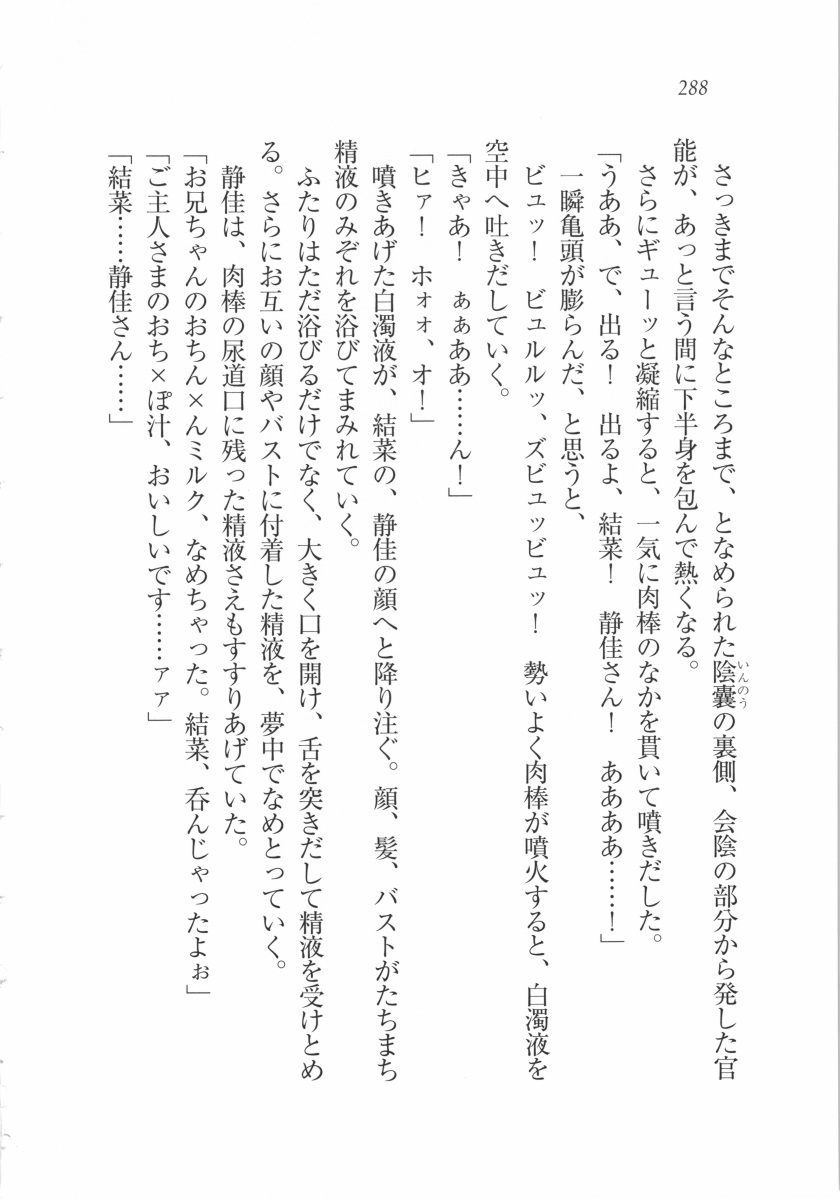 288
さっきまでそんなところまで、となめられた陰嚢の裏側、会陰の部分から発した官
いんのう
能が、あっと言う間に下半身を包んで熱くなる。
さらにギューッと凝縮すると、一気に肉棒のなかを貫いて噴きだした。
「うああ、で、出る！　出るよ、結菜！　静佳さん！　ああああ……！」
一瞬亀頭が膨らんだ、と思うと、
ビュッ！　ビュルルッ、ズビュッビュッ！　勢いよく肉棒が噴火すると、白濁液を
空中へ吐きだしていく。
「きゃあ！　ぁぁああ……ん！」
「ヒァ！　ホォォ、オ！」
噴きあげた白濁液が、結菜の、静佳の顔へと降り注ぐ。顔、髪、バストがたちまち
精液のみぞれを浴びてまみれていく。
ふたりはただ浴びるだけでなく、大きく口を開け、舌を突きだして精液を受けとめ
る。さらにお互いの顔やバストに付着した精液を、夢中でなめとっていく。
静佳は、肉棒の尿道口に残った精液さえもすすりあげていた。
「お兄ちゃんのおちん×んミルク、なめちゃった。結菜、呑んじゃったよぉ」
「ご主人さまのおち×ぽ汁、おいしいです……ァァ」
「結菜……静佳さん……」